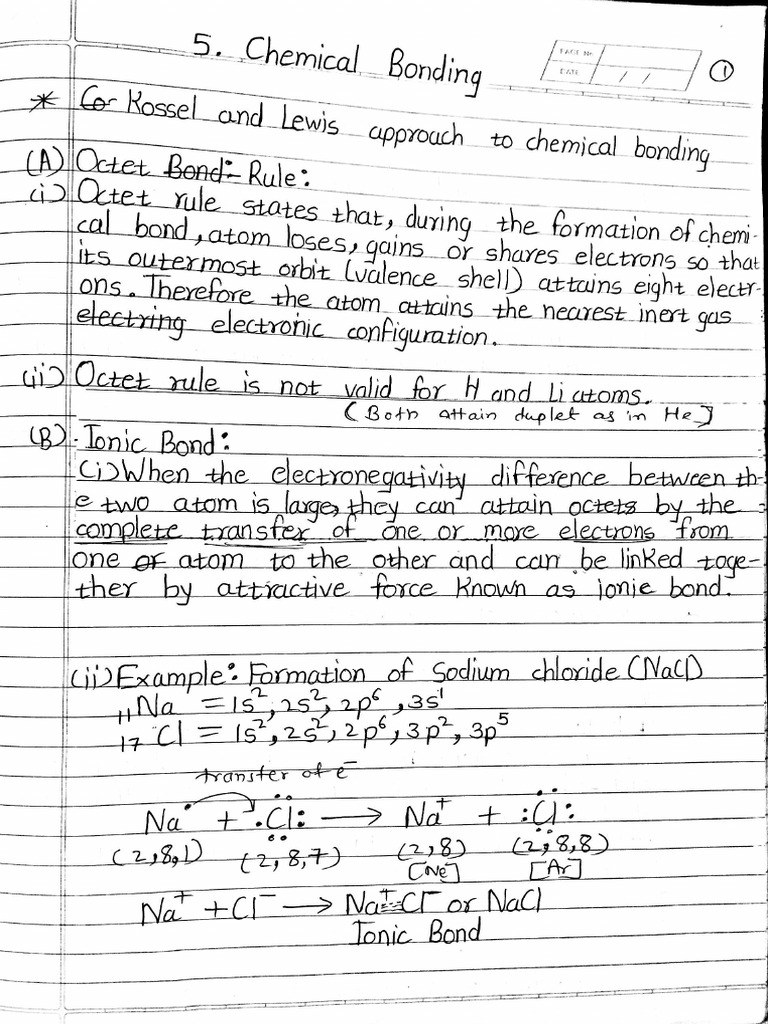 5. Chemical Bonding
PAGE No.
DATE / /
①
* Kossel and Lewis approach to chemical bonding
(A) Octet Bond:- Rule:
(i) Octet rule states that, during the formation of chemi-
cal bond, atom loses, gains or shares electrons so that
its outermost orbit (valence shell) attains eight electr-
ons. Therefore the atom attains the nearest inert gas
electring electronic configuration.
(ii) Octet rule is not valid for H and Li atoms.
(Both attain duplet as in He)
(B). Ionic Bond:
(i) When the electronegativity difference between th-
e two atom is large, they can attain octets by the
complete transfer of one or more electrons from
one of atom to the other and can be linked toge-
ther by attractive force known as ionic bond.
(ii) Example: Formation of Sodium chloride (NaCl)
₁₁Na = 1s², 2s², 2p⁶, 3s¹
₁₇Cl = 1s², 2s², 2p⁶, 3p², 3p⁵
transfer of e⁻
Na• + •Cl: → Na⁺ + :Cl:
(2,8,1) (2,8,7) (2,8) (2,8,8)
[Ne] [Ar]
Na⁺ + Cl⁻ → Na⁺Cl⁻ or NaCl
Ionic Bond